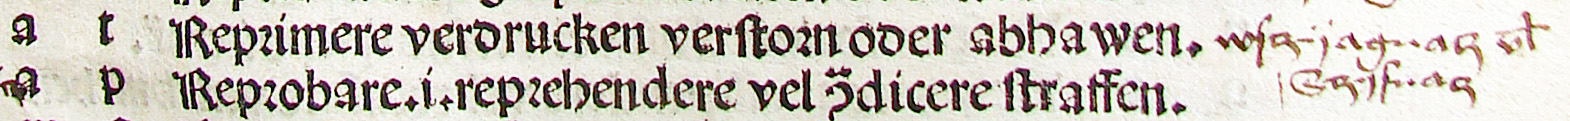 a t Reprimere verdrucken verstorn oder abhawen.
a p Reprobare .i. reprehendere vel ꝯ̃dicere straffen.